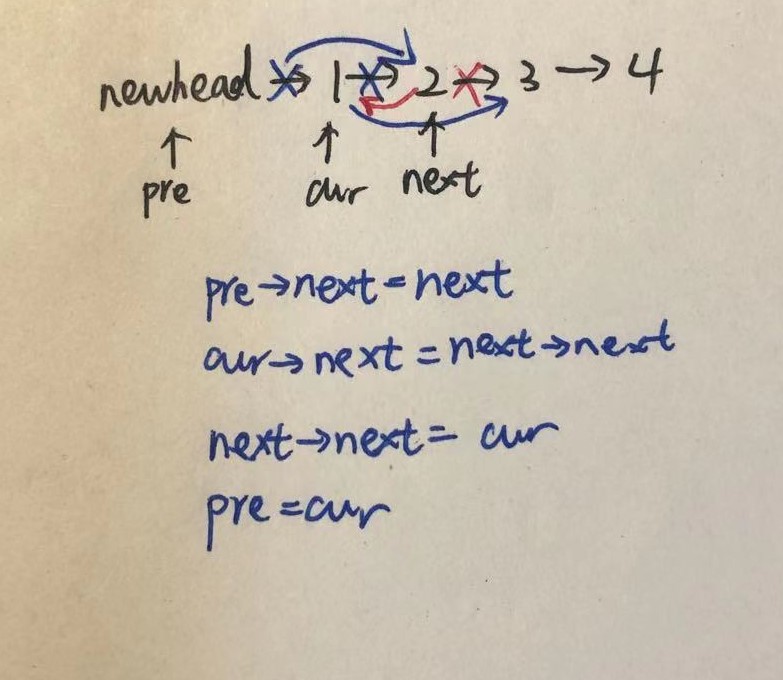 newhead → 1 → 2 → 3 → 4
↑ ↑ ↑
pre cur next
pre→next=next
cur→next=next→next
next→next= cur
pre=cur